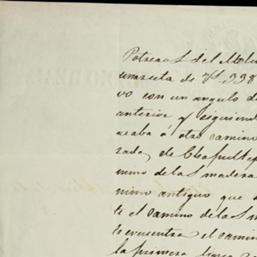 Potrero S. del Molin
una recta de Vs. 338
vo con un angulo d
anterior y siguiend
acaba á otro camino
rada, de Chapultep
mino de las madera
mino antiguo que
te el camino de las m
te encuentra el camin
la primera linea